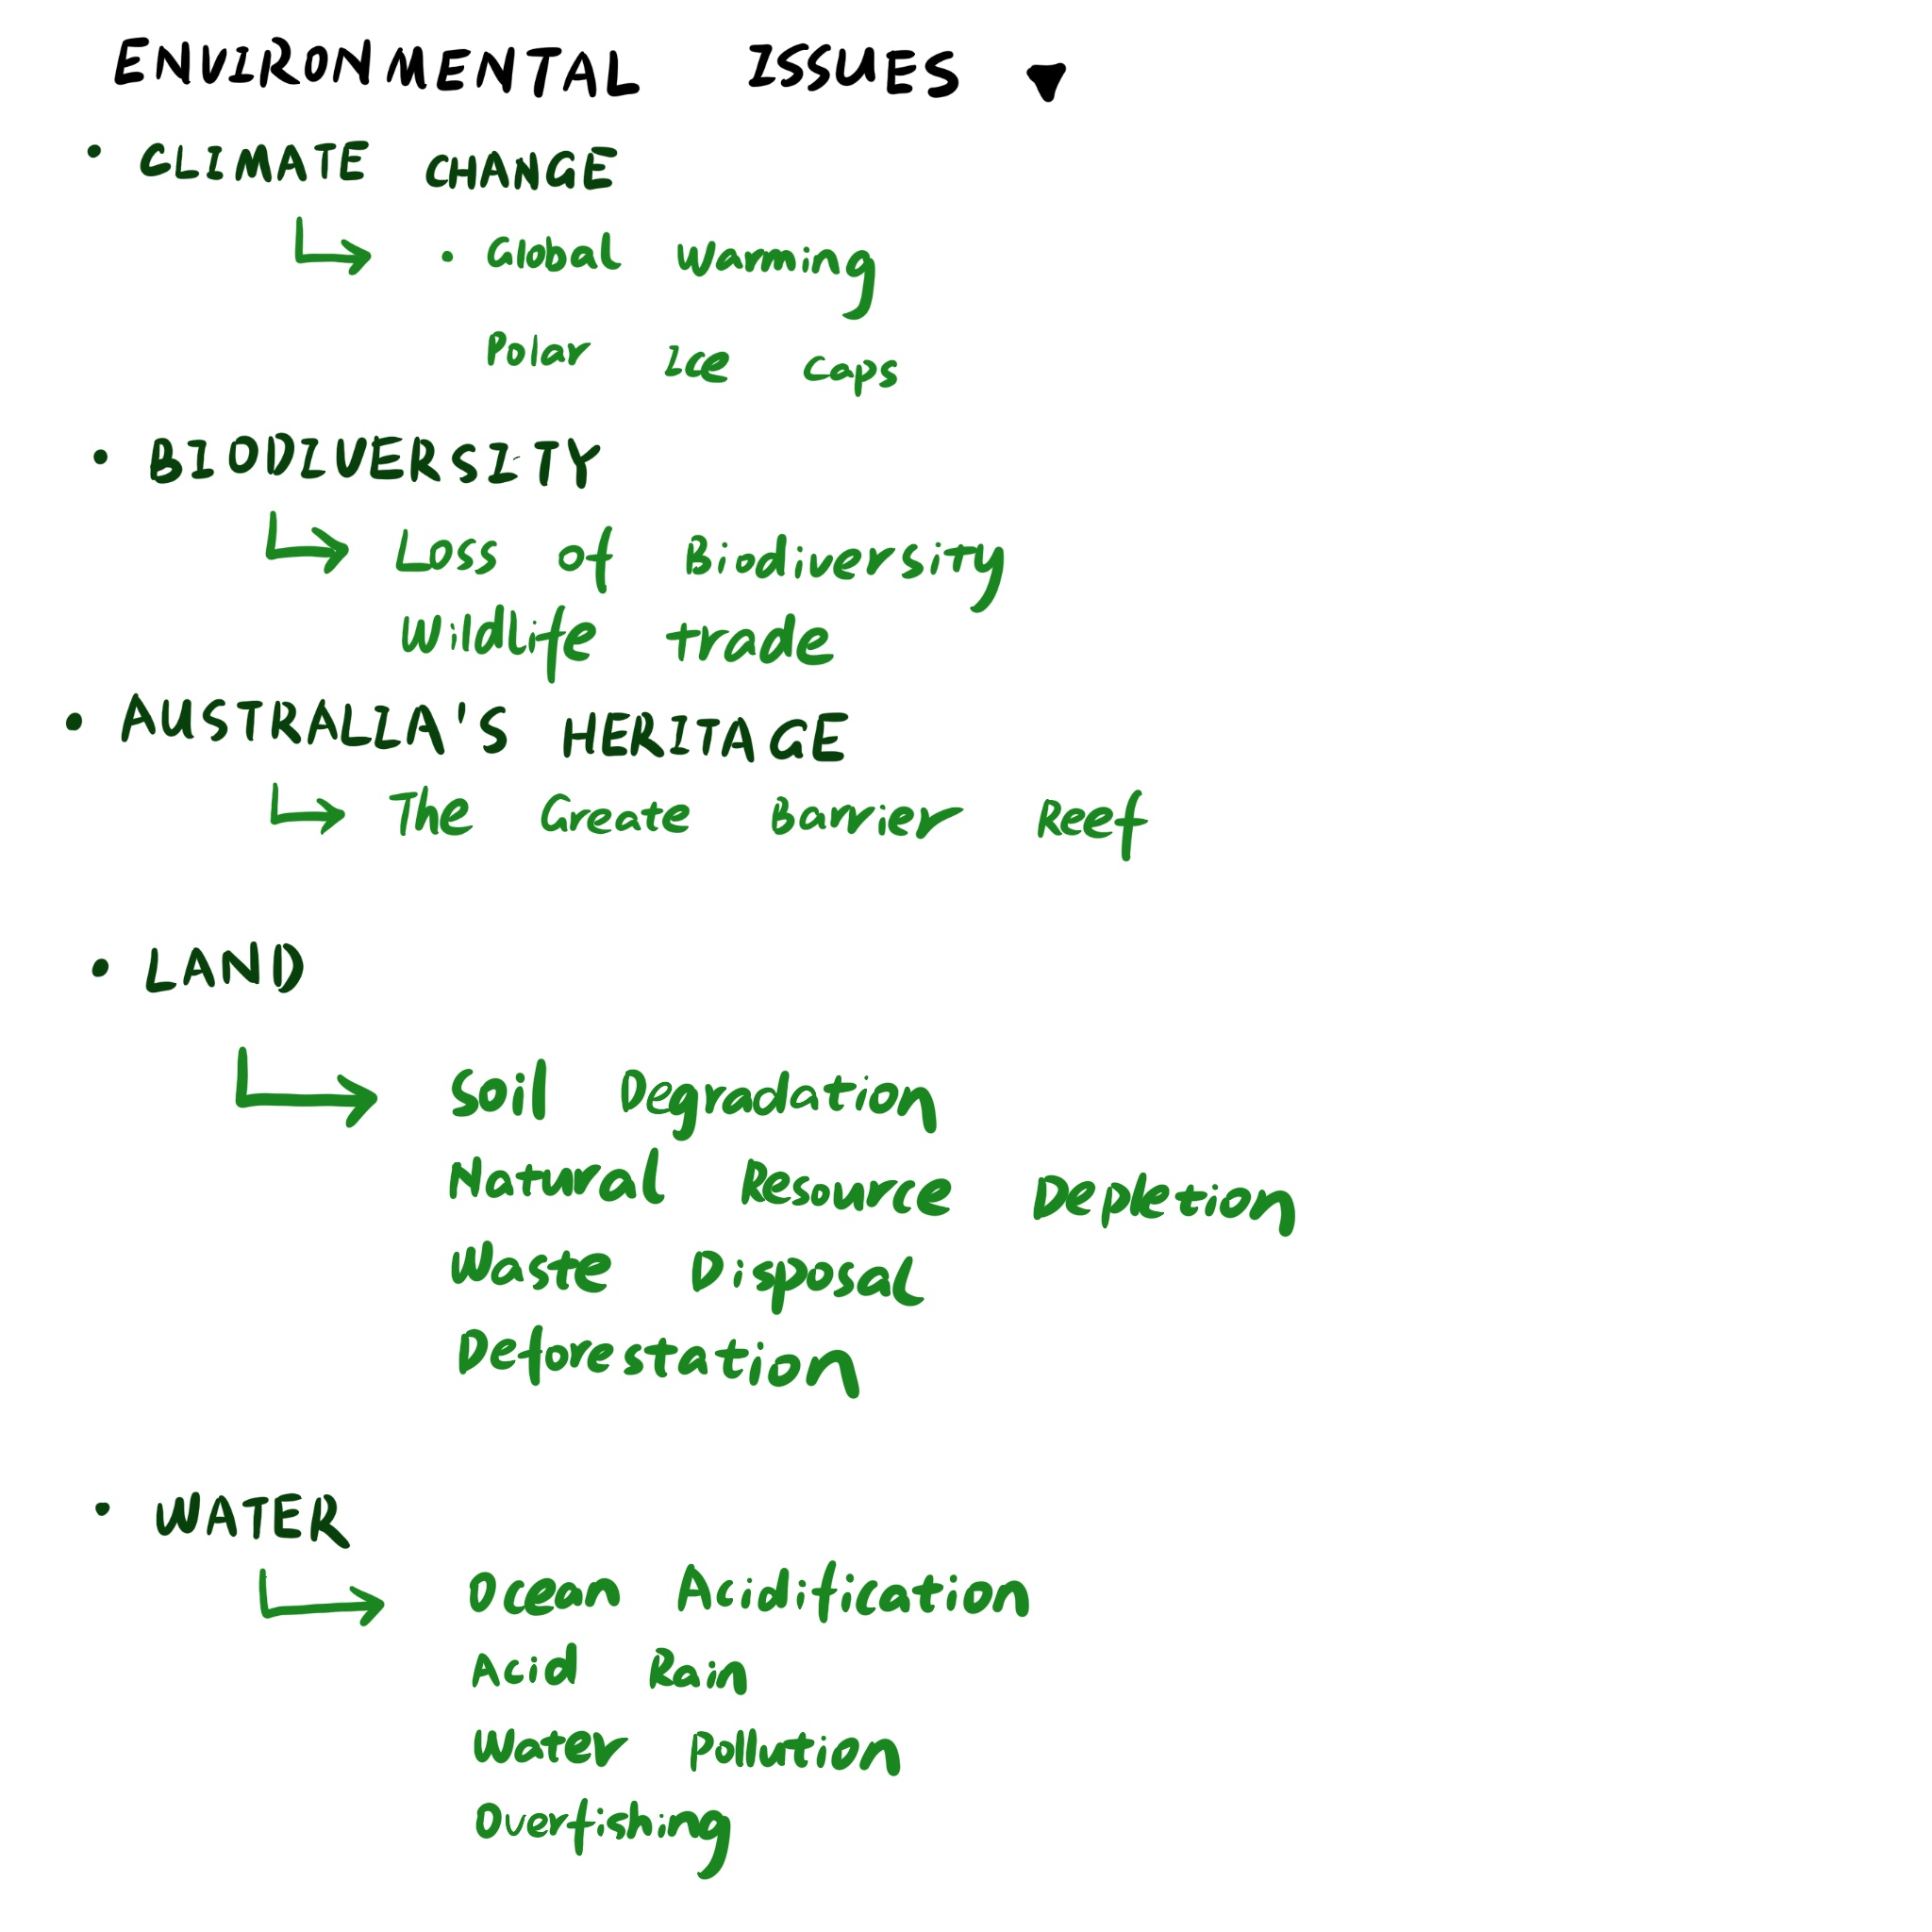 ENVIRONMENTAL ISSUES ▼
• CLIMATE CHANGE
↳ • Global warming
Polar Ice caps
• BIODIVERSITY
↳ Loss of Biodiversity
Wildlife trade
• AUSTRALIA'S HERITAGE
↳ The Greate Barrier Reef
• LAND
↳ Soil Degradation
Natural Resource Depletion
Waste Disposal
Deforestation
• WATER
↳ Ocean Acidification
Acid Rain
Water pollution
Overfishing